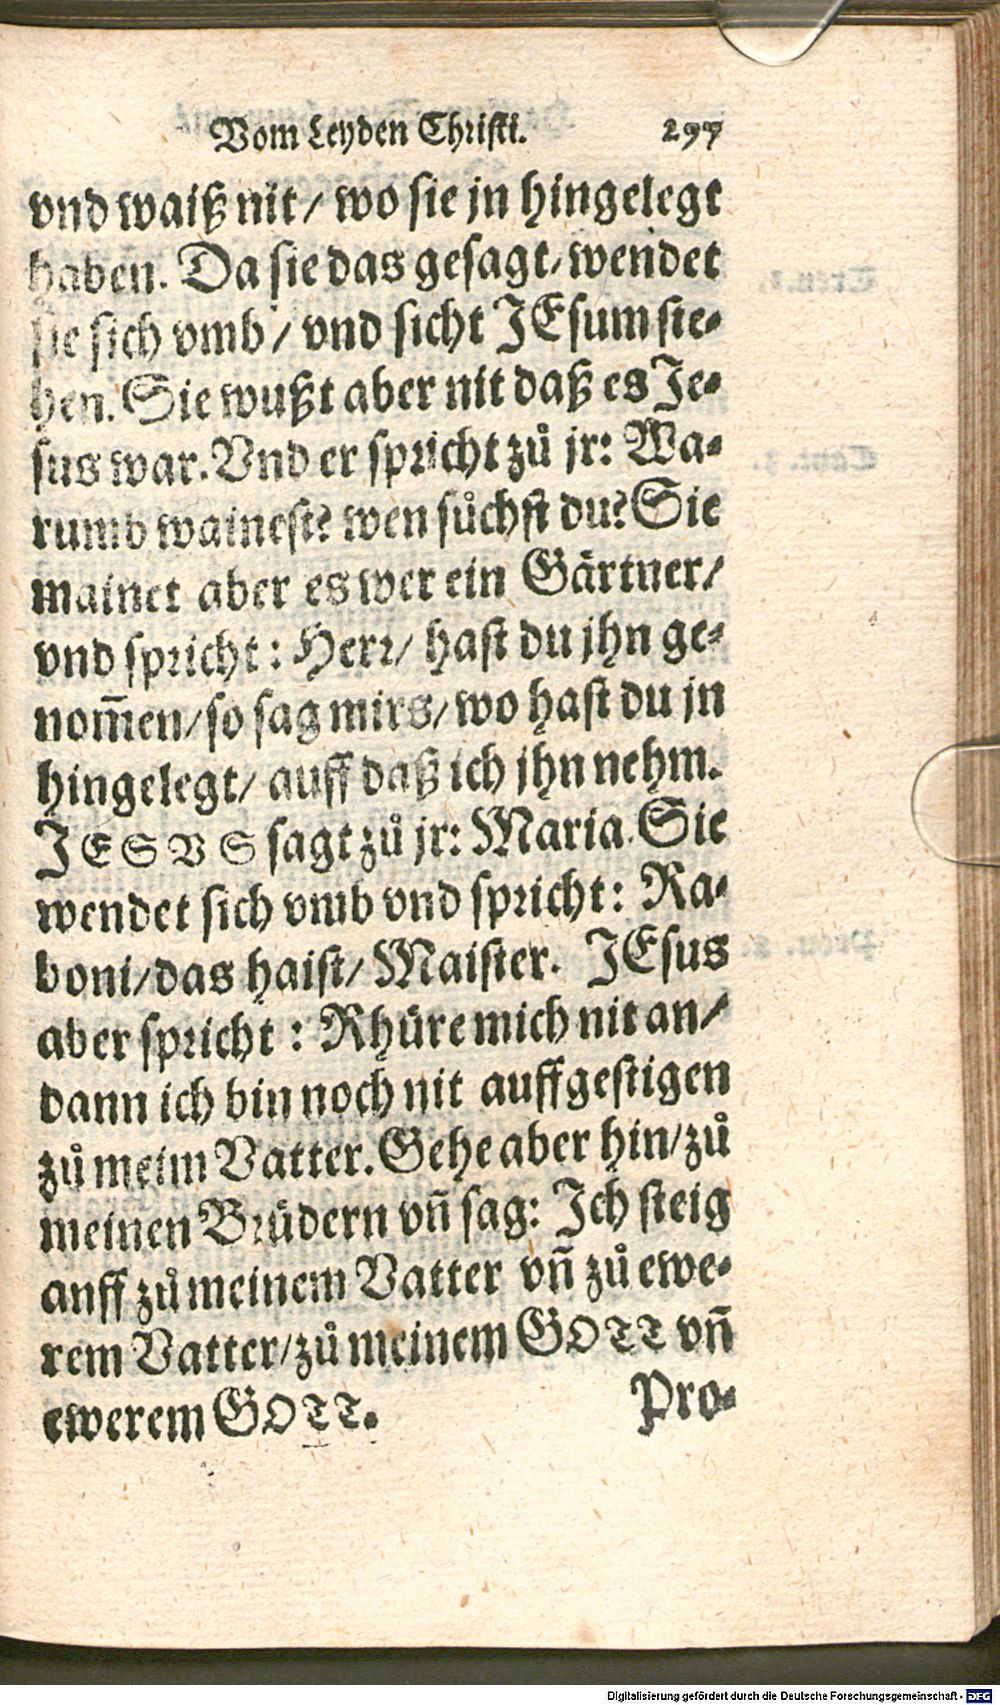 Vom Leyden Christi. 297
vnd waiß nit/ wo sie jn hingelegt
haben. Da sie das gesagt/ wendet
sie sich vmb/ vnd sicht JEsum ste-
hen. Sie wußt aber nit daß es Je-
sus war. Vnd er spricht zů jr: Wa-
rumb wainest? wen sůchst du? Sie
mainet aber es wer ein Gärtner/
vnd spricht: Herr/ hast du jhn ge-
nom̃en/ so sag mirs/ wo hast du jn
hingelegt/ auff daß ich jhn nehm.
JESVS sagt zů jr: Maria. Sie
wendet sich vmb vnd spricht: Ra-
boni/ das haist/ Maister. JEsus
aber spricht: Rhüre mich nit an/
dann ich bin noch nit auffgestigen
zů meim Vatter. Gehe aber hin/ zů
meinen Brüdern vñ sag: Ich steig
anff zů meinem Vatter vñ zů ewe-
rem Vatter/ zů meinem GOTT vñ
ewerem GOTT.
Pro-
Digitalisierung gefördert durch die Deutsche Forschungsgemeinschaft - DFG